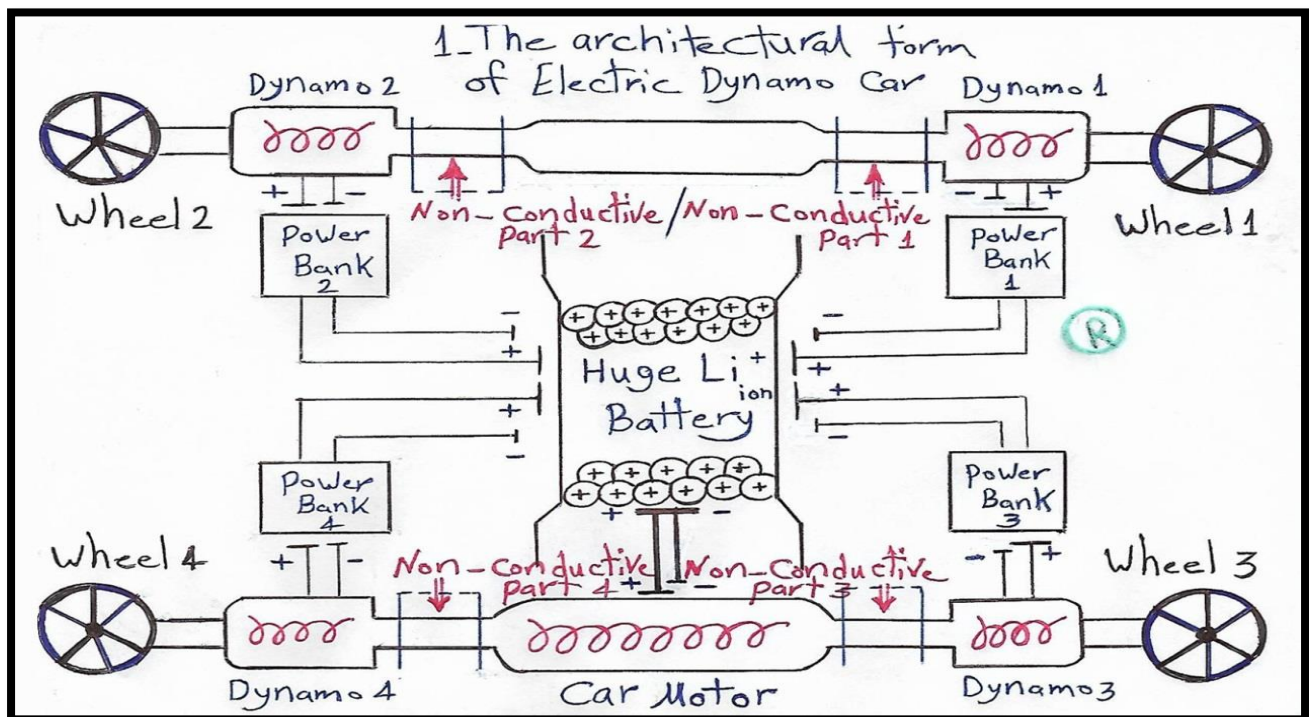 1_The architectural form
of Electric Dynamo Car
Dynamo 2
Dynamo 1
Wheel 2
Wheel 1
+ -
- +
Non-Conductive/Non-Conductive
Part 2
Part 1
Power
Bank
2
Power
Bank
1
R
-
+
+
-
-
+
+
-
+ + + + + + +
+ + + + + +
Huge Li+
ion
Battery
+ + + + + +
+ + + + + +
+ -
Power
Bank
4
Power
Bank
3
+ -
- +
Wheel 4
Wheel 3
Non-Conductive
Part 4
Non-Conductive
Part 3
+ -
Dynamo 4
Car Motor
Dynamo 3